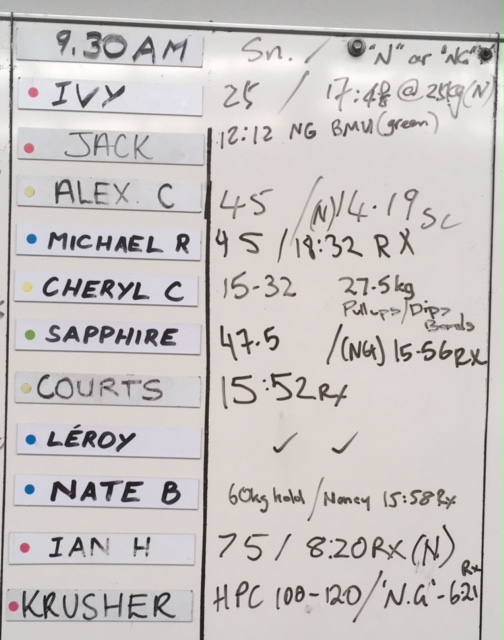 9.30AM Sn. / "N" or "NG"
IVY 25 / 17:48 @ 25kg (N)
JACK 12:12 NG BMU (green)
ALEX. C 45 /(N) 14.19 SC
MICHAEL R 45 / 18:32 RX
CHERYL C 15-32 27.5kg
Pullups/Dips
Bands
SAPPHIRE 47.5 /(NG) 15-56 RX
COURTS 15:52 Rx
LÉROY ✓ ✓
NATE B 60kg hold / Nancy 15:58 Rx
IAN H 75 / 8:20 RX (N)
KRUSHER HPC 100-120 / 'N.G' - 6:21 Rx